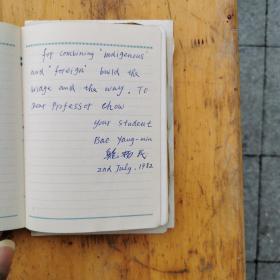 for combining "indigenous
and "foreign" build the
bridge and the way. To
Dear Professor Chow
your student
Bae Yang-min
2nd July. 1982